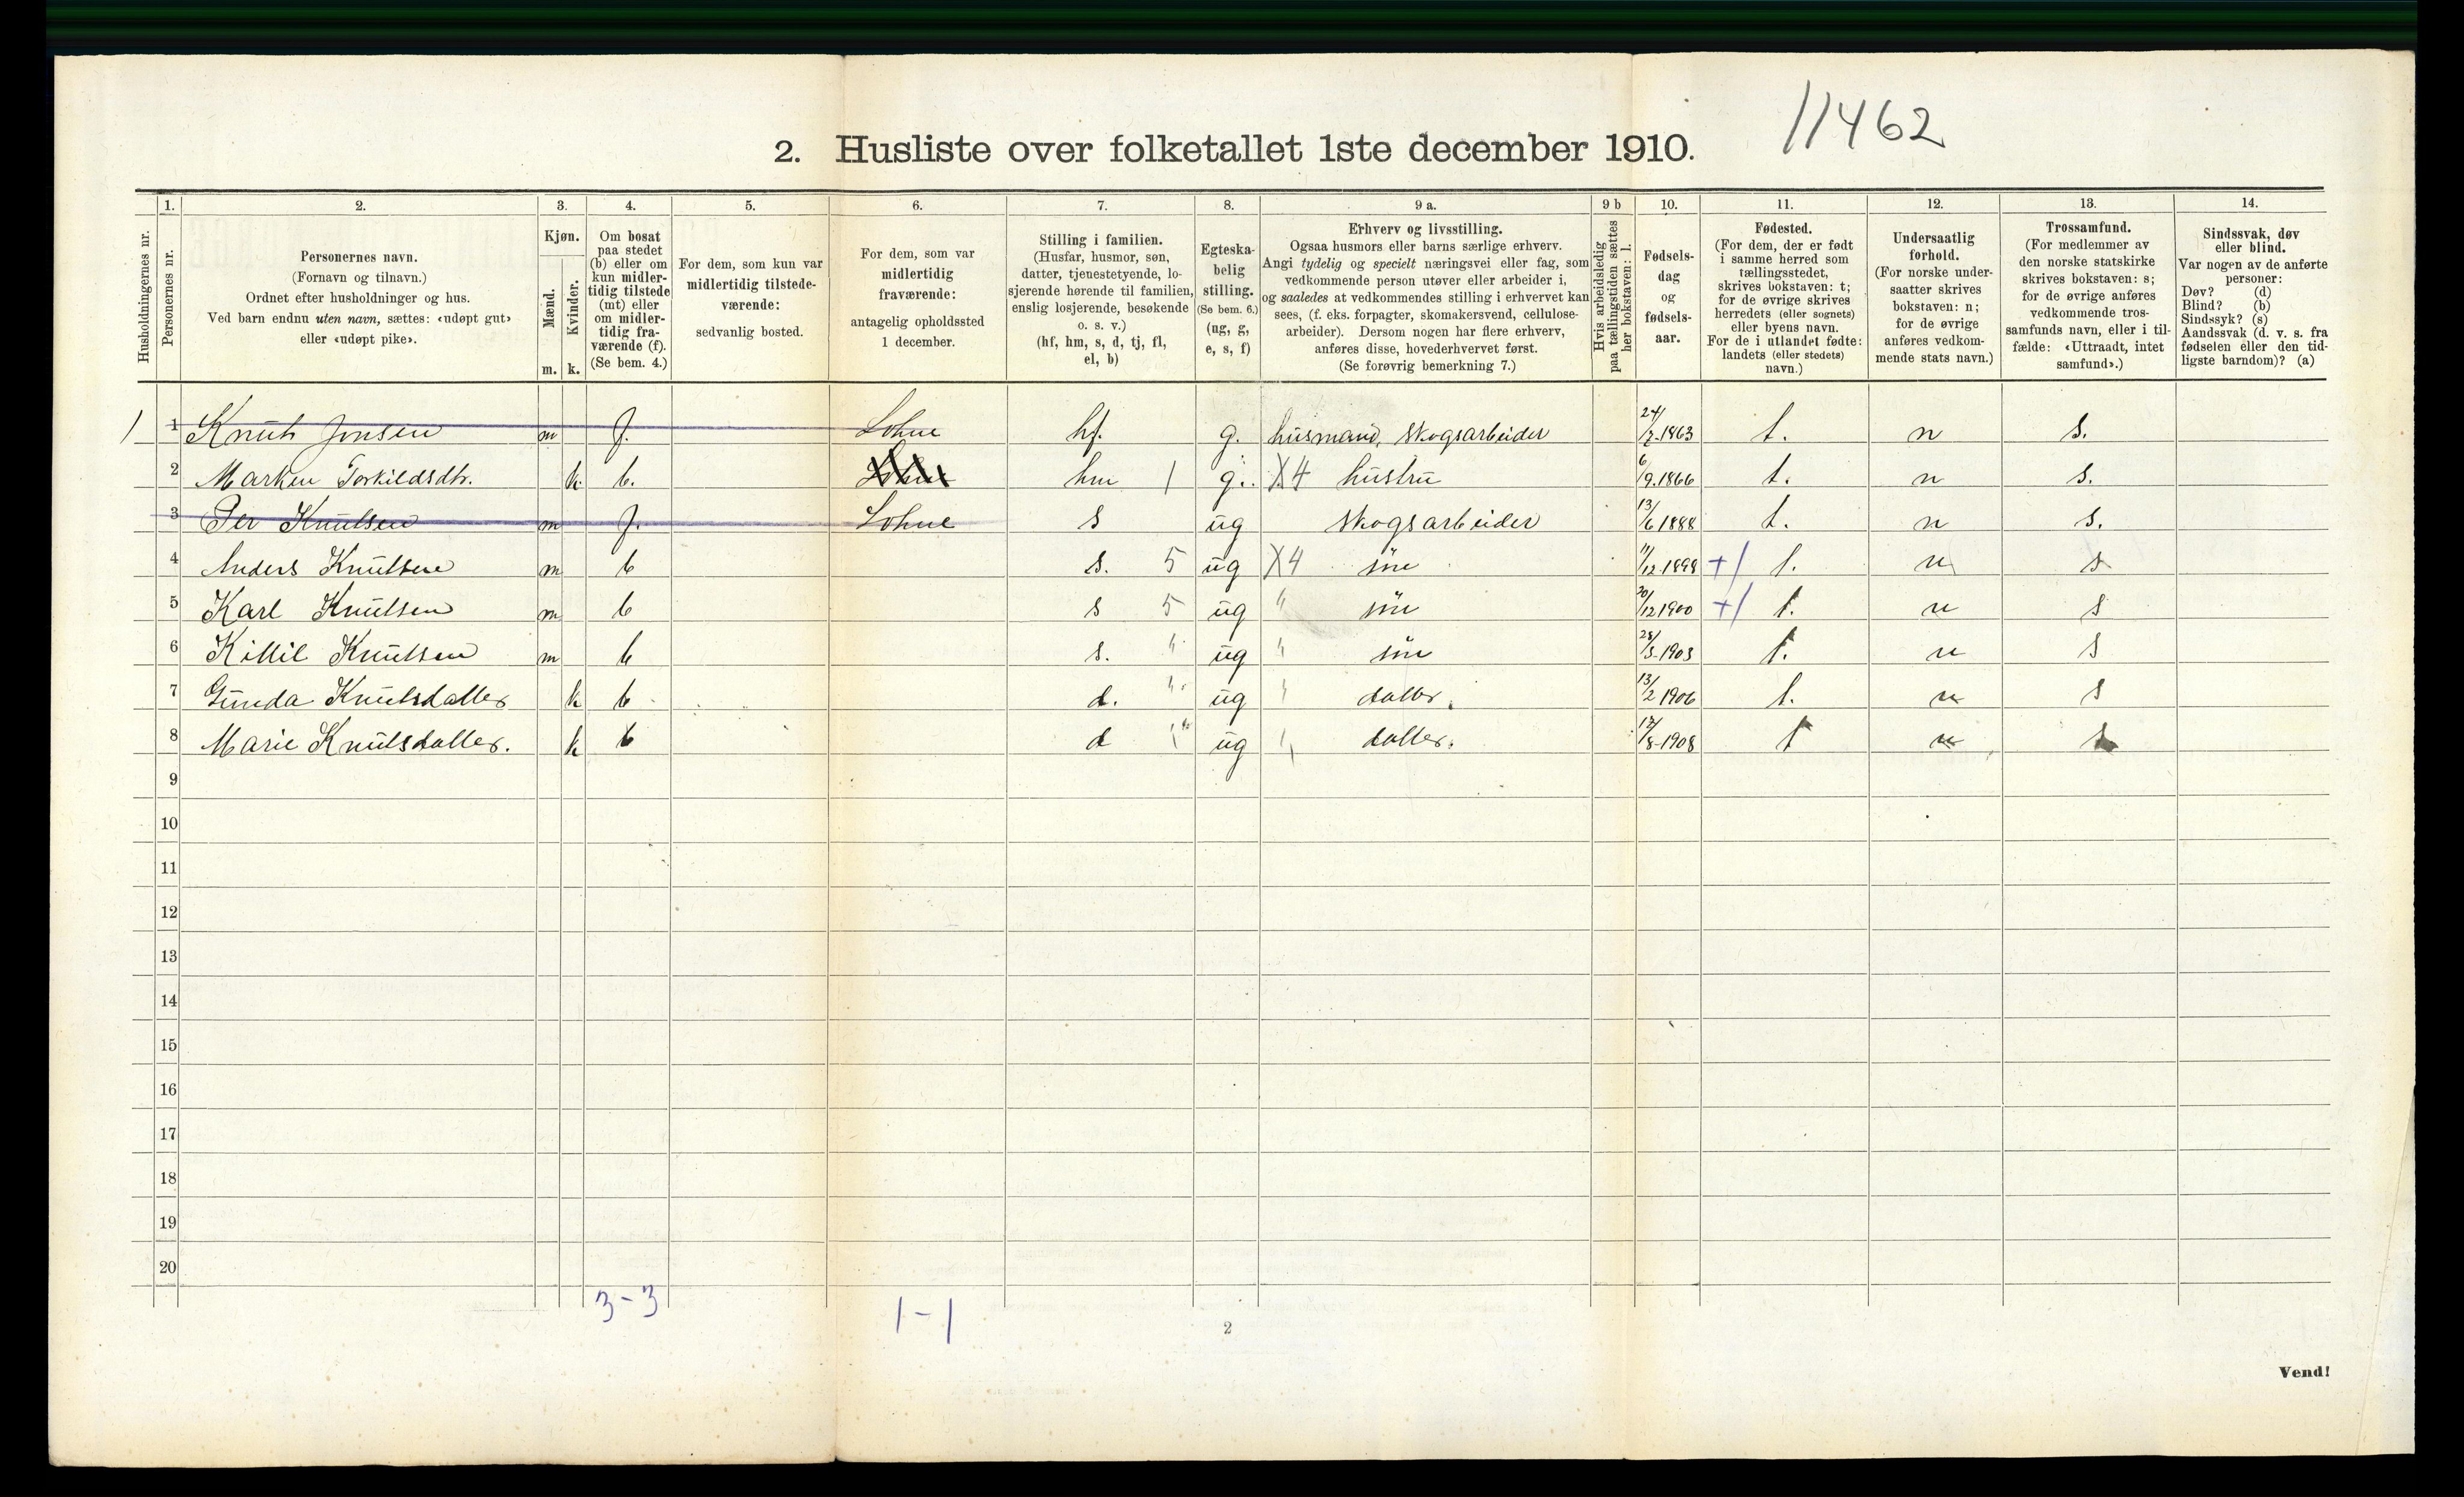 11462
2. Husliste over folketallet 1ste december 1910.
Husholdningernes nr.
1.
Personernes nr.
2.
Personernes navn.
(Fornavn og tilnavn.)
Ordnet efter husholdninger og hus.
Ved barn endnu uten navn, sættes: «udøpt gut»
eller «udøpt pike».
3.
Kjøn.
Mænd.
Kvinder.
m. k.
4.
Om bosat
paa stedet
(b) eller om
kun midler-
tidig tilstede
(mt) eller
om midler-
tidig fra-
værende (f).
(Se bem. 4.)
5.
For dem, som kun var
midlertidig tilstede-
værende:
sedvanlig bosted.
6.
For dem, som var
midlertidig
fraværende:
antagelig opholdssted
1 december.
7.
Stilling i familien.
(Husfar, husmor, søn,
datter, tjenestetyende, lo-
sjerende hørende til familien,
enslig losjerende, besøkende
o. s. v.)
(hf, hm, s, d, tj, fl,
el, b)
8.
Egteska-
belig
stilling.
(Se bem. 6.)
(ug, g,
e, s, f)
9 a.
Erhverv og livsstilling.
Ogsaa husmors eller barns særlige erhverv.
Angi tydelig og specielt næringsvei eller fag, som
vedkommende person utøver eller arbeider i,
og saaledes at vedkommendes stilling i erhvervet kan
sees, (f. eks. forpagter, skomakersvend, cellulose-
arbeider). Dersom nogen har flere erhverv,
anføres disse, hovederhvervet først.
(Se forøvrig bemerkning 7.)
9 b
Hvis arbeidsledig
paa tællingstiden sættes
her bokstaven: l.
10.
Fødsels-
dag
og
fødsels-
aar.
11.
Fødested.
(For dem, der er født
i samme herred som
tællingsstedet,
skrives bokstaven: t;
for de øvrige skrives
herredets (eller sognets)
eller byens navn.
For de i utlandet fødte:
landets (eller stedets)
navn.)
12.
Undersaatlig
forhold.
(For norske under-
saatter skrives
bokstaven: n;
for de øvrige
anføres vedkom-
mende stats navn.)
13.
Trossamfund.
(For medlemmer av
den norske statskirke
skrives bokstaven: s;
for de øvrige anføres
vedkommende tros-
samfunds navn, eller i til-
fælde: «Uttraadt, intet
samfund».)
14.
Sindssvak, døv
eller blind.
Var nogen av de anførte
personer:
Døv? (d)
Blind? (b)
Sindssyk? (s)
Aandssvak (d. v. s. fra
fødselen eller den tid-
ligste barndom)? (a)
1 1 Knut Jonsen m f. Lohne hf. g. husmand, skogsarbeider 24/7-1863 t. n s.
2 Marken Torkildsdtr. k. b. hm 1 g. X4 hustru 6/9.1866 t. n s.
3 Per Knutsen m f. Lohne s ug skogsarbeider 13/6 1888 t. n s.
4 Anders Knutsen m b s. 5 ug X4 søn 11/12.1898 +/ t. n s
5 Karl Knutsen m b s 5 ug " søn 20/12 1900 +/ t. n s
6 Kittil Knutsen m b s. " ug " søn 28/3-1903 t. n s
7 Gunda Knutsdatter k b d. " ug " datter. 13/2 1906 t. n s
8 Marie Knutsdatter. k b d " ug " datter. 12/8-1908 t n s
9
10
11
12
13
14
15
16
17
18
19
20
3-3
1-1
2
Vend!